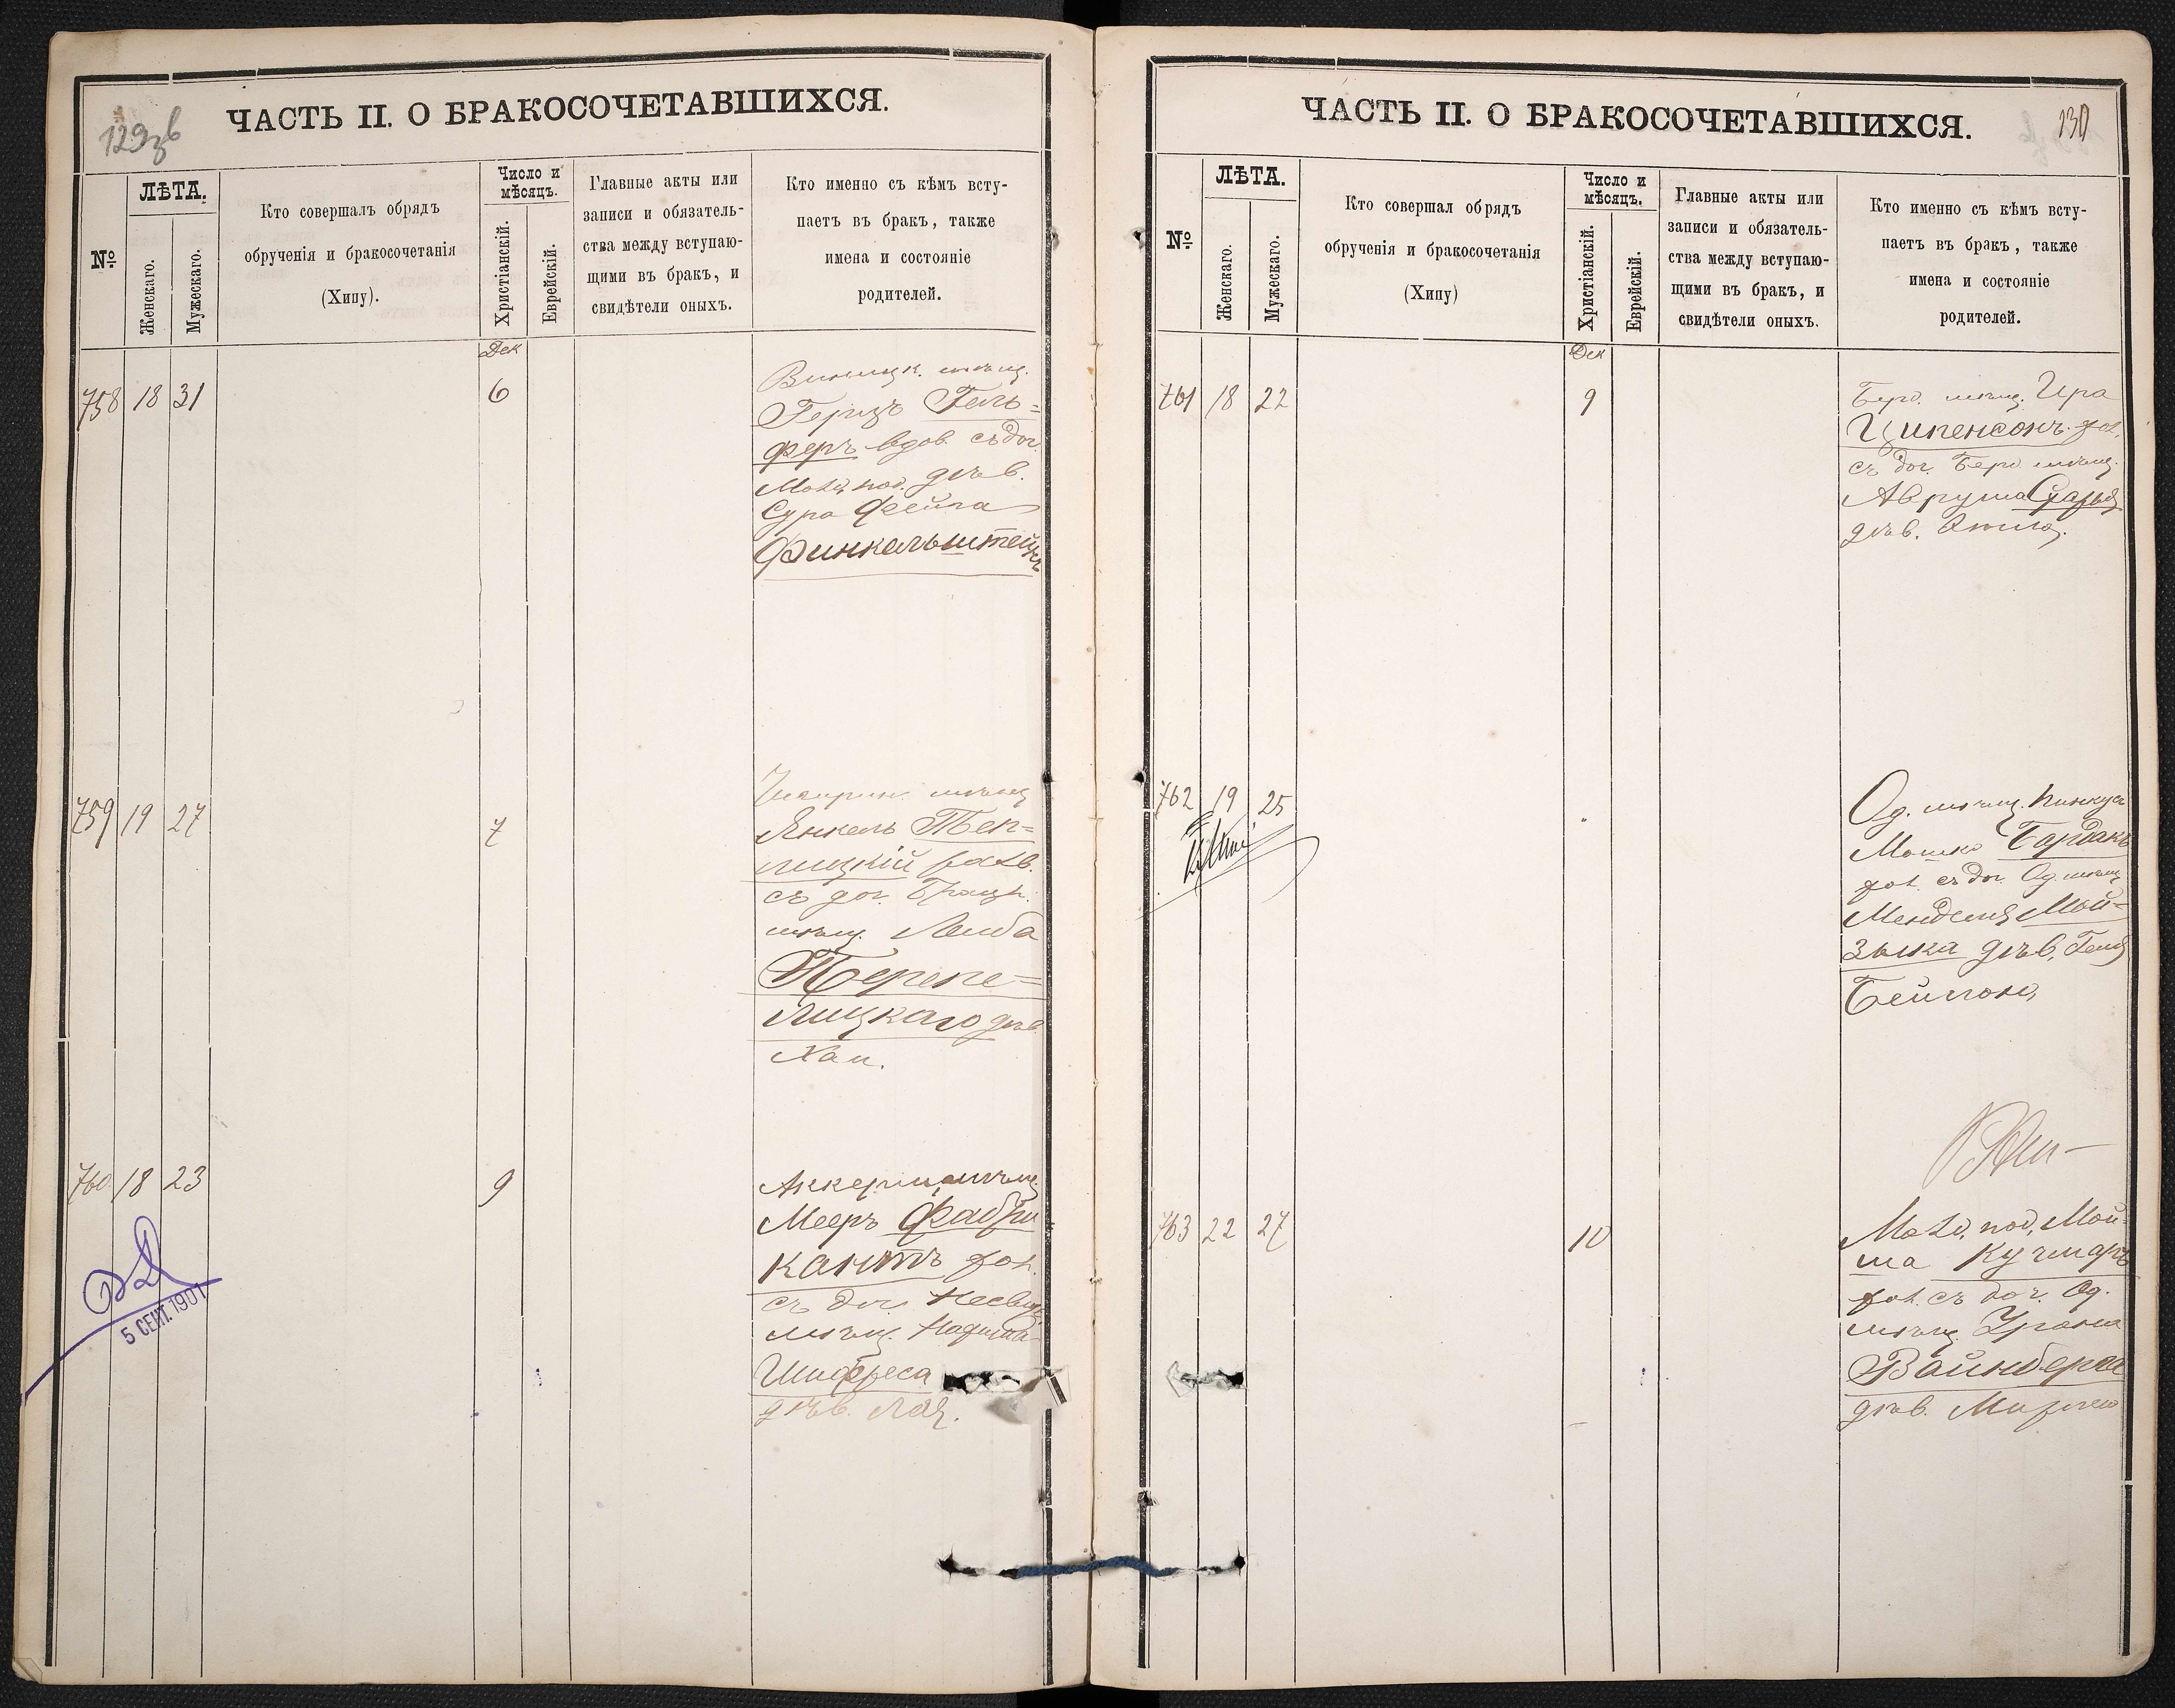 129 об
ЧАСТЬ II. О БРАКОСОЧЕТАВШИХСЯ.
№
ЛѢТА.
Женскаго.
Мужескаго.
Кто совершалъ обрядъ
обрученія и бракосочетанія
(Хипу).
Число и
мѣсяцъ.
Христіанскій.
Еврейскій.
Главные акты или
записи и обязатель-
ства между вступаю-
щими въ бракъ, и
свидѣтели оныхъ.
Кто именно съ кѣмъ всту-
паетъ въ бракъ, также
имена и состояніе
родителей.
Дек
758 18 31
6
Виницк. мѣщ.
Герцъ Гель=
феръ вдов. съ доч.
Могил. под. дѣв.
Сура Фейга
Финкельштейнъ
759 19 27
7
мѣщ
Янкель Теп=
лицкій разв.
съ доч. Брацл.
мѣщ. Лейба
Перепе=
лицкаго дѣв.
Хаи.
760 18 23
9
Аккерм. мѣщ.
Мееръ Фабри=
кантъ хол.
съ доч. Несвиж.
мѣщ.
Шифреса
дѣв. Леи.
5 СЕНТ. 1901
130
ЧАСТЬ II. О БРАКОСОЧЕТАВШИХСЯ.
№
ЛѢТА.
Женскаго.
Мужескаго.
Кто совершал обрядъ
обрученія и бракосочетанія
(Хипу)
Число и
мѣсяцъ.
Христіанскій.
Еврейскій.
Главные акты или
записи и обязатель-
ства между вступаю-
щими въ бракъ, и
свидѣтели оныхъ.
Кто именно съ кѣмъ всту-
паетъ въ бракъ, также
имена и состояніе
родителей.
Дек
761 18 22
9
Берд. мѣщ. Ира
Ципенсонъ хол.
съ доч. Берд. мѣщ.
Аврума
дѣв.
762 19 25
Од. мѣщ. Пинкус
Мошко Бардакъ
хол. съ доч. Од. мѣщ
Менделя Мой=
зыка дѣв.
763 22 27
10
Могил. под. Мой
ша Кучмаръ
хол. съ доч. Од.
мѣщ.
Вайнберга
дѣв.